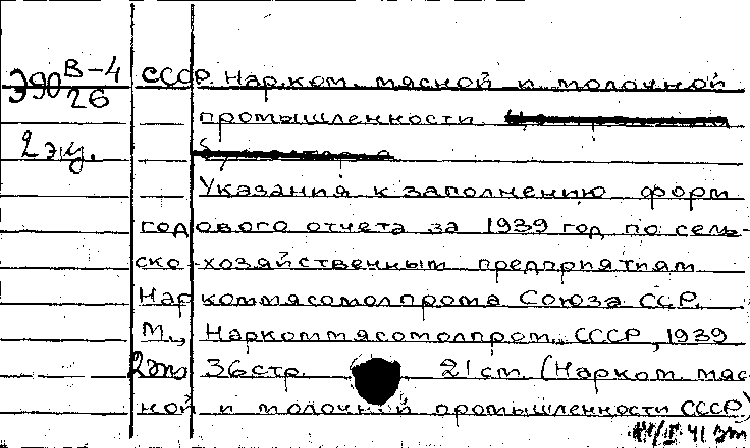 Э90 В-4/26 СССР. Нар.ком. мясной и молочной
промышленности
2 экз.
Указания к заполнению форм
годового отчета за 1939 год по сель-
ско-хозяйственным предприятиям
Наркоммясомолпрома Союза ССР.
М., Наркоммясомолпром СССР, 1939
2экз 36стр. 21см. (Нарком. мяс-
ной и молочной промышленности СССР)